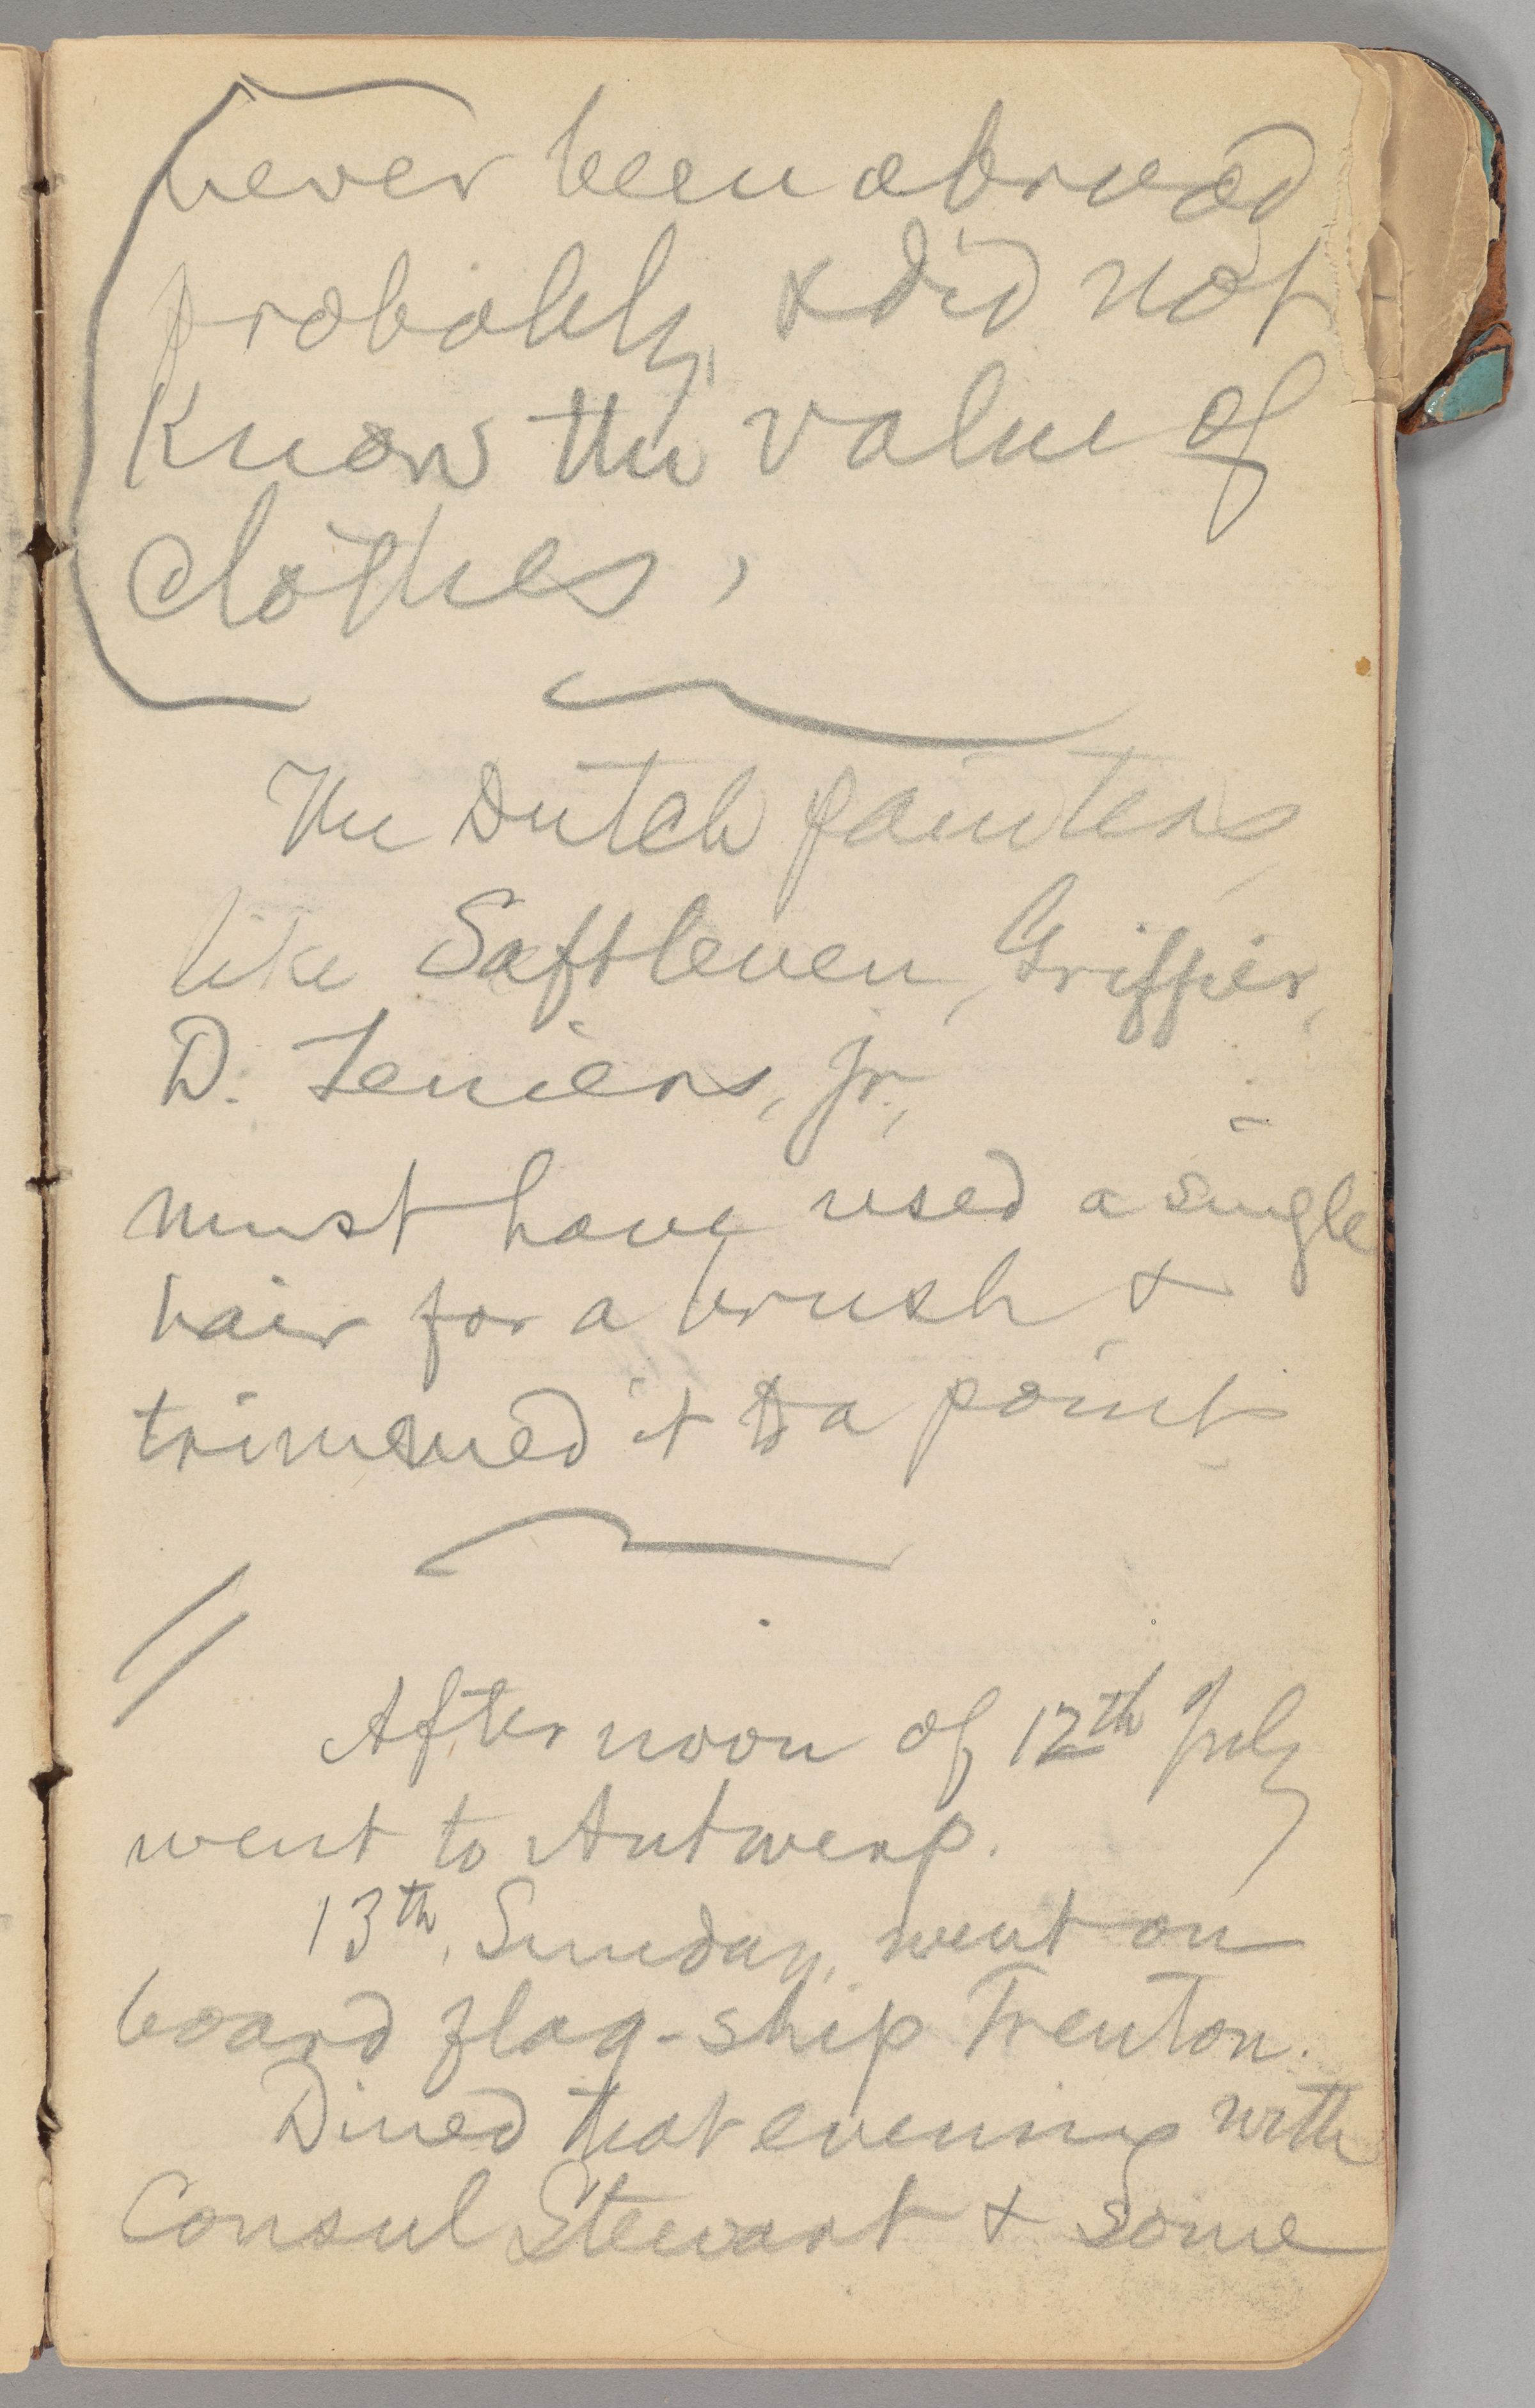 never been abroad
probably, & did not
know the value of
clothes,
The Dutch painters,
like Saftleven, Griffier,
D. Teniers, Jr.,
must have used a single
hair for a brush, &
trimmed it to a point
Afternoon of 12th July
went to Antwerp.
13th, Sunday, went on
board flag-ship Trenton.
Dined that evening with
Consul Stewart & some